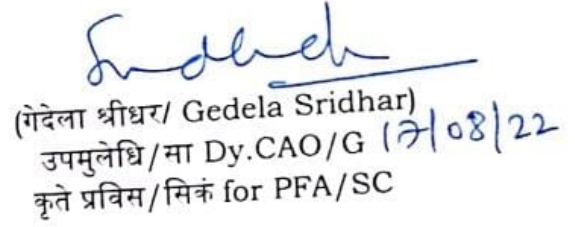 (गेदेला श्रीधर/ Gedela Sridhar)
उपमुलेधि/मा Dy.CAO/G 17/08/22
कृते प्रविस/सिकं for PFA/SC